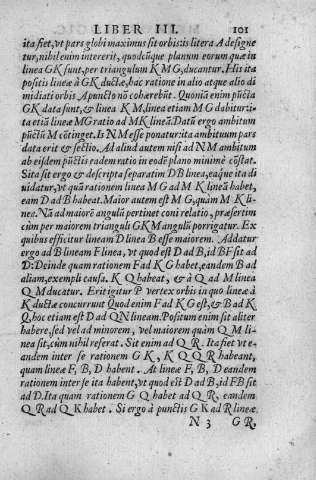 LIBER III. 101
ita fiet, vt pars globi maximus sit orbis: is litera A designe
tur, nihil enim intererit, quodcũque planum eorum quæ in
linea GK sunt, per triangulum K M G, ducantur. His ita
positis lineæ à GK ductæ, hac ratione in alio atque alio di
midiati orbis A puncto nõ cohærebũt. Quoniã enim pũcta
GK data sunt, & linea K M, linea etiam M G dabitur: i-
ta etiã lineæ MG ratio ad MK lineã. Datũ ergo ambitum
pũctũ M cõtinget. Is NM esse ponatur: ita ambitu um pars
data erit & sectio. Ad aliud autem nisi ad NM ambitum
ab eisdem pũctis eadem ratio in eodẽ plano minimè cõstat.
Sita sit ergo & descripta separatim DB linea, eaq́ue ita di
uidatur, vt quã rationem linea MG ad M K lineã habet,
eam D ad B habeat. Maior autem est MG, quàm M K li-
nea. Nã ad maiorẽ anguli pertinet coni relatio, præsertim
cùm per maiorem trianguli GKM angulũ porrigatur. Ex
quibus efficitur lineam D linea B esse maiorem. Addatur
ergo ad B lineam F linea, vt quod est D ad B, id BF sit ad
D: Deinde quam rationem F ad K G habet, eandem B ad
aliam, exempli causa. K Q habeat, & à Q ad M linea
Q M ducatur. Erit igitur P vertex orbis in quo lineæ à
K ductæ concurrunt Quod enim F ad K G est, & B ad K
Q, hoc etiam est D ad QN lineam. Positum enim sit aliter
habere, sed vel ad minorem, vel maiorem quàm Q M li-
nea sit, cùm nihil referat. Sit enim ad Q R. Ita fiet vt e-
andem inter se rationem G K, K Q Q R habeant,
quam lineæ F, B, D habent. At lineæ F, B, D eandem
rationem inter se ita habent, vt quod est D ad B, id FB sit
ad D. Ita quam rationem G Q habet ad Q R, eandem
Q R ad Q K habet. Si ergo à punctis G K ad R lineæ.
N 3 G R,